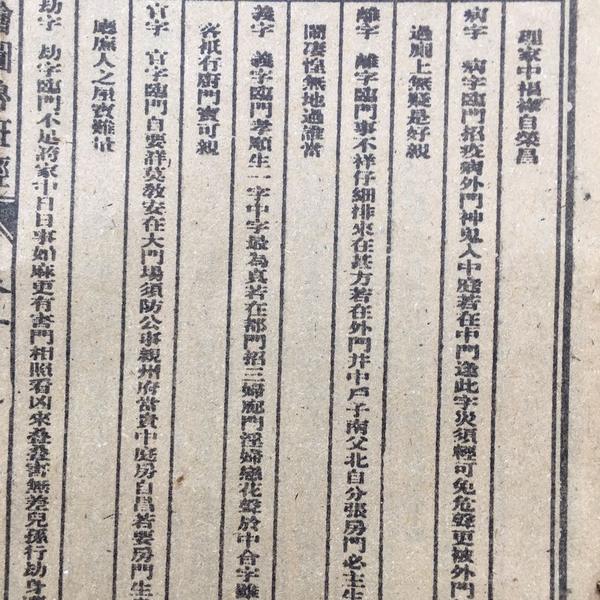 理家中福祿自榮昌
病字　病字臨門招疫病外門神鬼入中庭若在中門逢此字災須輕可免危聲更被外門
過廁上無疑是好親
離字　離字臨門事不祥仔細排來在甚方若在外門并中戶子南父北自分張房門必主生
鬧凄惶無地過誰當
義字　義字臨門孝順生一字中字最為真若在都門招三婦廊門淫婦戀花聲於中合字雖
客祇有廚門實可親
官字　官字臨門自要詳莫教安在大門場須防公事親州府富貴中庭房自昌若要房門生
廳廡人之屋實難量
劫字　劫字臨門不足誇家中日日事如麻更有害門相照看凶來疊疊害無差兒孫行劫身
繪圖魯班經